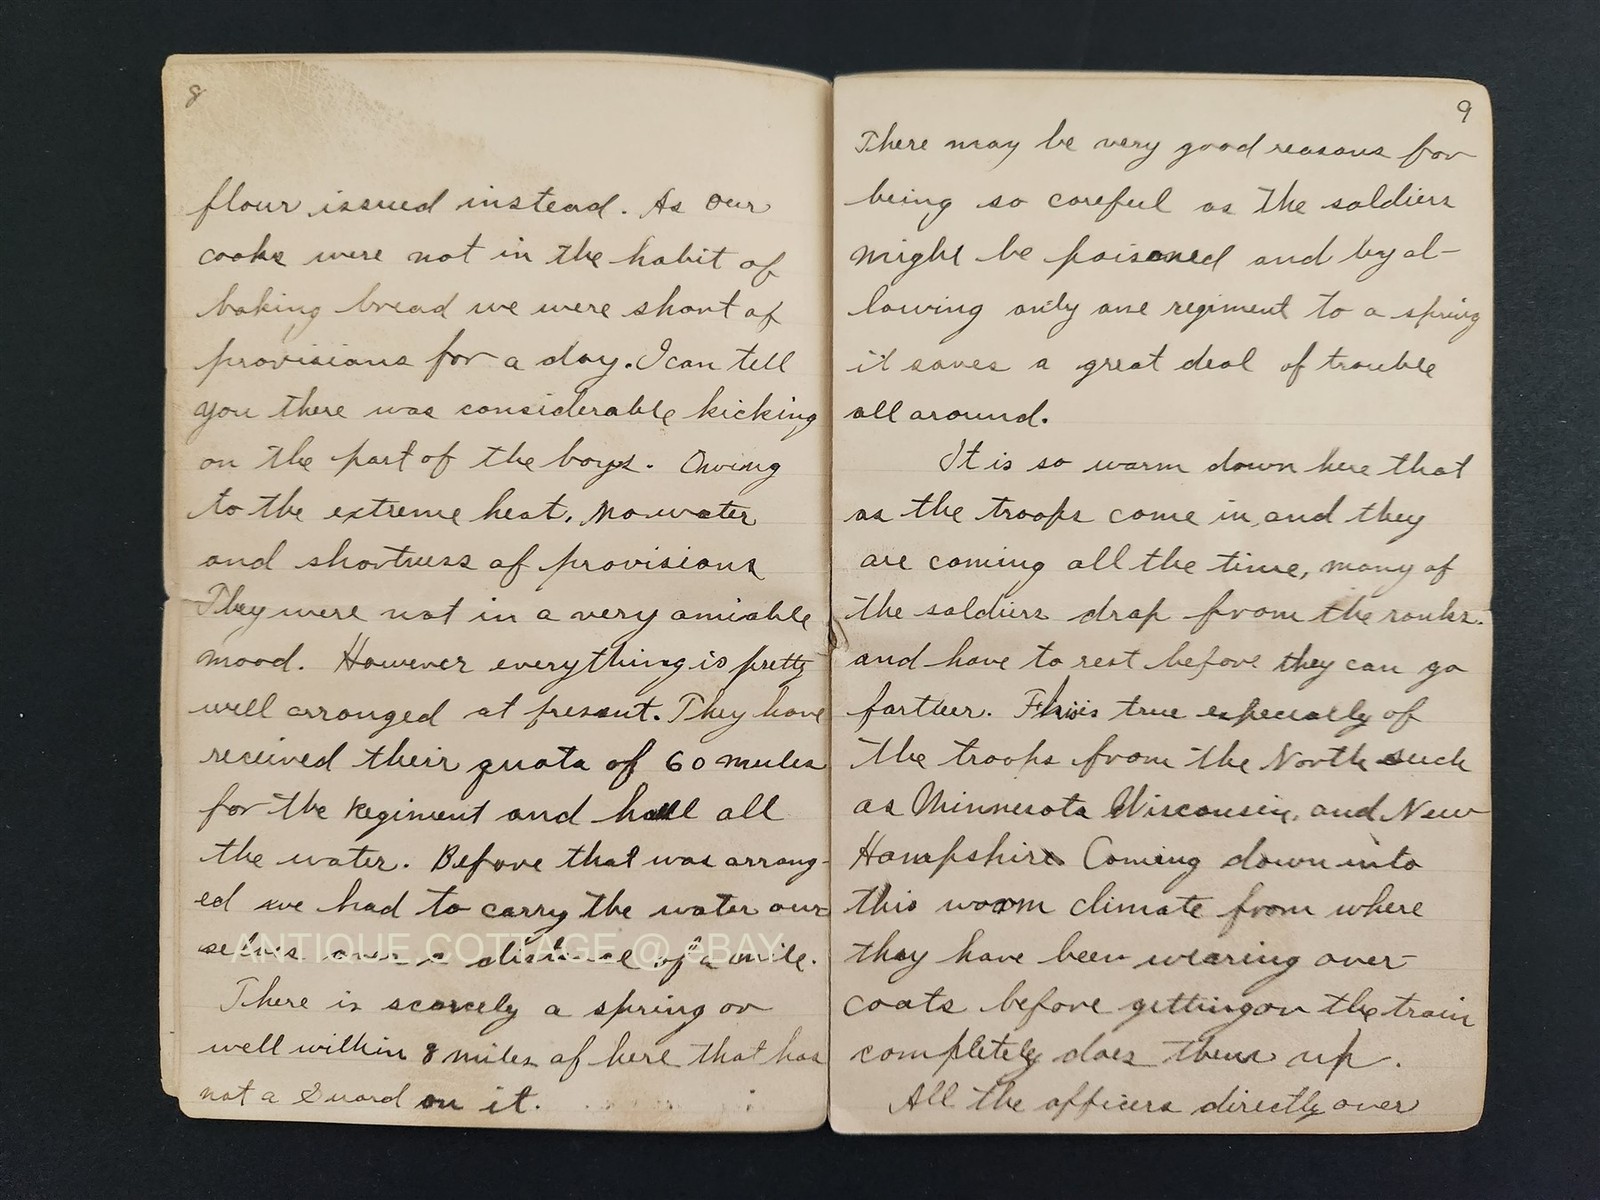 8
flour issued instead. As our
cooks were not in the habit of
baking bread we were short of
provisions for a day. I can tell
you there was considerable kicking
on the part of the boys. Owing
to the extreme heat, no water
and shortness of provisions
They were not in a very amiable
mood. However everything is pretty
well arranged at present. They have
received their quota of 60 mules
for the Regiment and haul all
the water. Before that was arrang-
ed we had to carry the water our
selves over a distance of a mile.
ANTIQUE COTTAGE @ eBAY
There is scarcely a spring or
well within 8 miles of here that has
not a Guard on it.
9
There may be very good reasons for
being so careful as the soldiers
might be poisoned and by al-
lowing only one regiment to a spring
it saves a great deal of trouble
all around.
It is so warm down here that
as the troops come in, and they
are coming all the time, many of
the soldiers drop from the ranks.
and have to rest before they can go
farther. This is true especially of
the troops from the North such
as Minnesota Wisconsin, and New
Hampshire Coming down into
this warm climate from where
they have been wearing over-
coats before getting on the train
completely does them up.
All the officers directly over